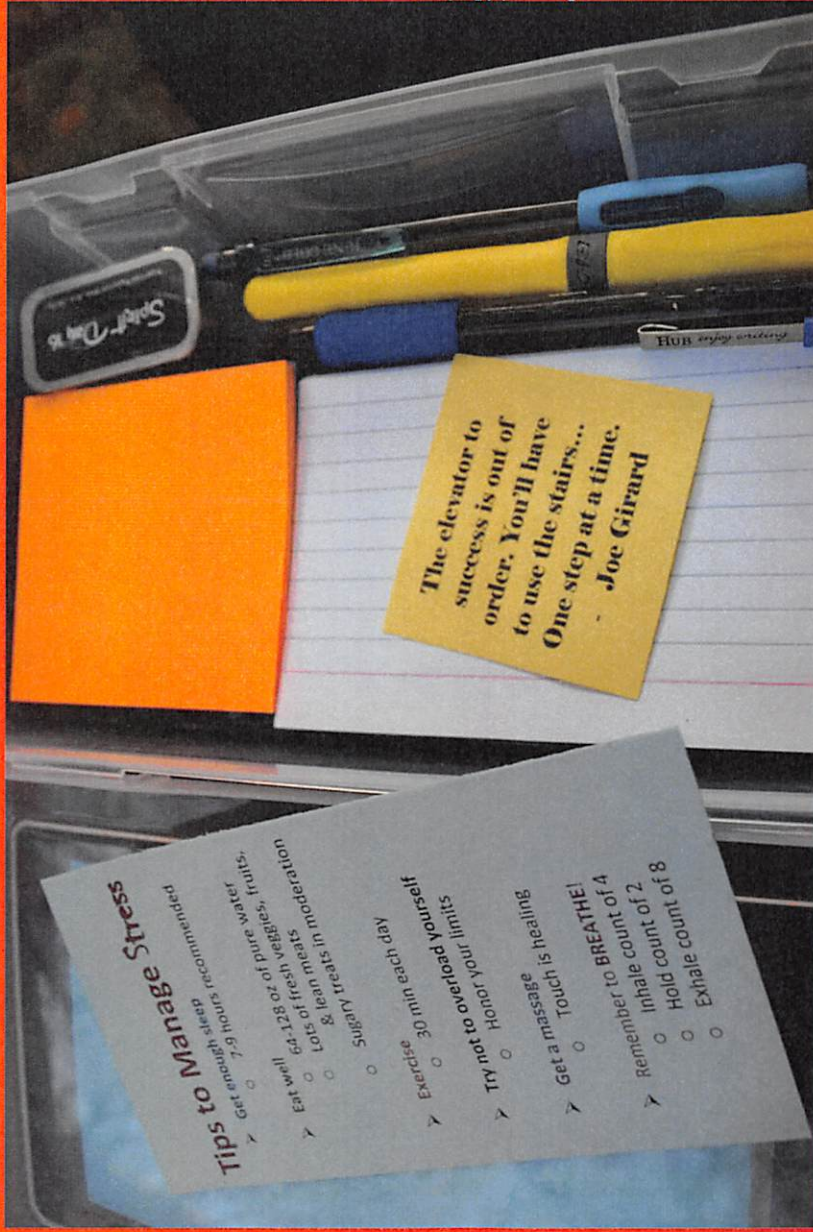 Tips to Manage Stress
➤ Get enough sleep
o 7-9 hours recommended
➤ Eat well
o 64-128 oz of pure water
o Lots of fresh veggies, fruits,
& lean meats
o Sugary treats in moderation
➤ Exercise
o 30 min each day
➤ Try not to overload yourself
o Honor your limits
➤ Get a massage
o Touch is healing
➤ Remember to BREATHE!
o Inhale count of 4
o Hold count of 2
o Exhale count of 8
The elevator to
success is out of
order. You'll have
to use the stairs...
One step at a time.
- Joe Girard
HUB enjoy writing